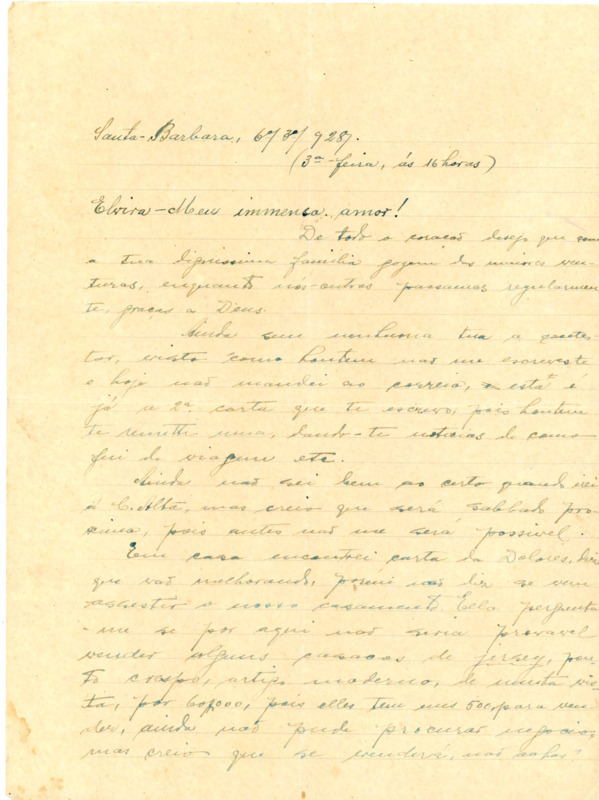 Santa-Barbara, 6º/3º/928.
(3ª-feira, ás 16 horas)
Elvira-Meu immenso amor!
De todo o coração desejo que com
a tua dignissima familia gozem das maiores ven-
turas, enquanto nós-outros passamos regularmen-
te, graças a Deus.
Ainda sem nenhuma tua a contes-
tar, visto como hontem não me escreveste
e hoje não mandei ao correio, esta é
já a 2ª carta que te escrevo, pois hontem
te remetti uma, dando-te noticias de como
fui de viagem etc.
Ainda não sei bem ao certo quando irei
á C. Alta, mas creio que será sabbado pro-
ximo, pois antes não me será possivel.
Em casa encontrei carta da Dolores, diz
que vão melhorando, porem não diz se vem
assestir o nosso casamento. Ella pergunta
-me se por aqui não seria provavel
vender alguns casacos de jersey, pon-
to crespo, artigo moderno, de muita vis-
ta, por 60$000, pois elles tem uns 500, para ven-
der, ainda não pude procurar negocio,
mas creio que se venderá, não achas?